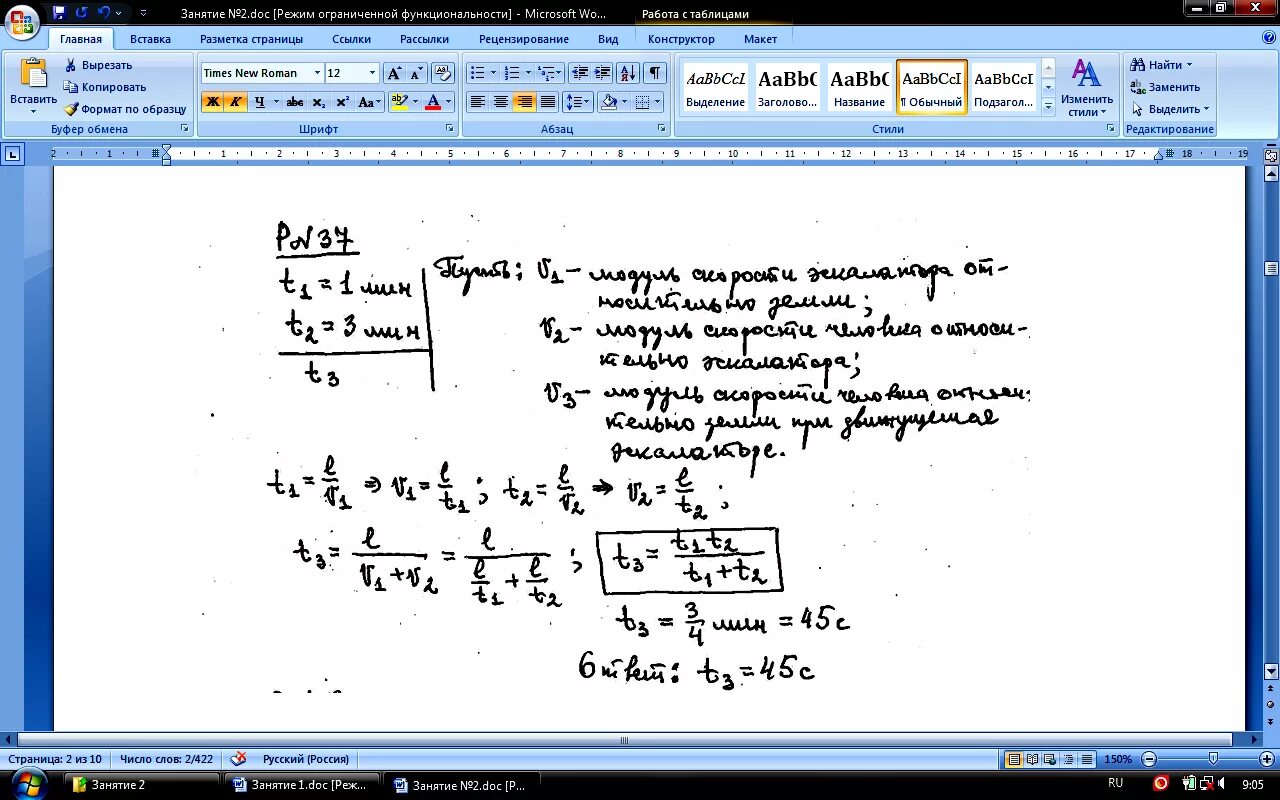 Занятие №2.doc [Режим ограниченной функциональности] - Microsoft Wo...
Работа с таблицами
Главная Вставка Разметка страницы Ссылки Рассылки Рецензирование Вид Конструктор Макет
Вставить
Вырезать
Копировать
Формат по образцу
Буфер обмена
Times New Roman 12
Ж К Ч abc x₂ x² Aa
Шрифт
Абзац
AaBbCcI AaBbC AaBbC AaBbCcI AaBbCcI
Выделение Заголово... Название ¶ Обычный Подзагол...
Изменить стили
Стили
Найти
Заменить
Выделить
Редактирование
2 1 1 2 3 4 5 6 7 8 9 10 11 12 13 14 15 16 17 18 19
P№37
t₁ = 1 мин
t₂ = 3 мин
t₃
Пусть: v₁ – модуль скорости эскалатора от-
носительно земли;
v₂ – модуль скорости человека относи-
тельно эскалатора;
v₃ – модуль скорости человека относи-
тельно земли при движущемся
эскалаторе.
t₁ = l/v₁ ⇒ v₁ = l/t₁; t₂ = l/v₂ ⇒ v₂ = l/t₂;
t₃ = l/(v₁+v₂) = l/(l/t₁ + l/t₂); t₃ = t₁t₂/(t₁+t₂)
t₃ = 3/4 мин = 45 с
Ответ: t₃ = 45 с
Страница: 2 из 10 Число слов: 2/422 Русский (Россия) 150%
Занятие 2 Занятие 1.doc [Реж... Занятие №2.doc [Р... RU 9:05